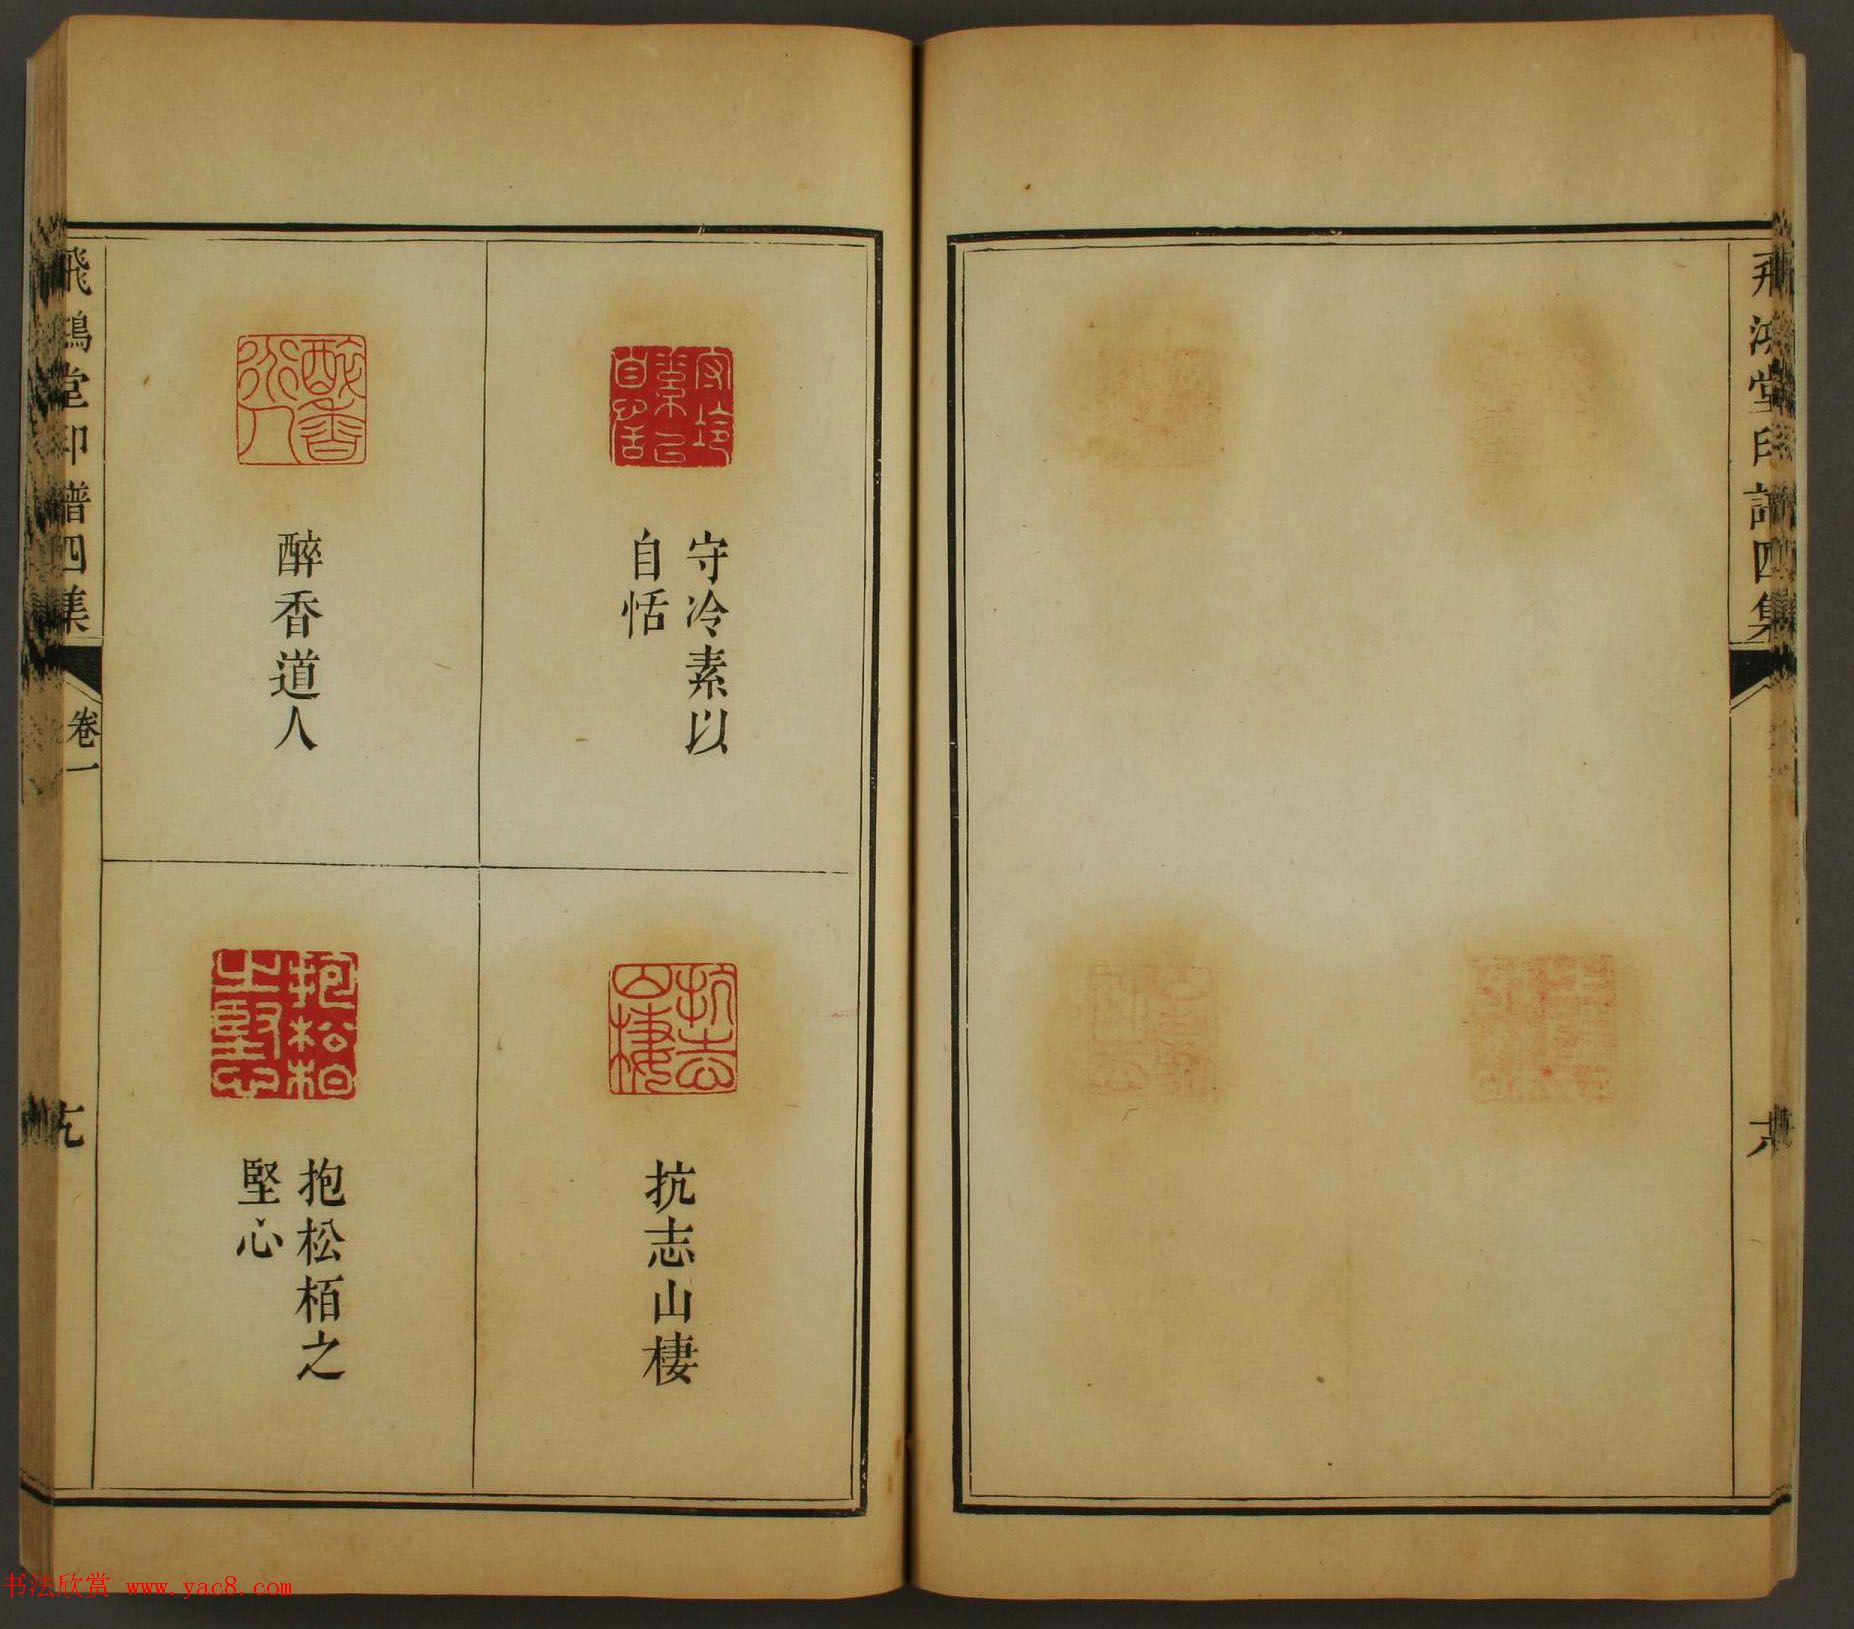 飛鴻堂印譜四集
六
守冷素以
自恬
醉香道人
抗志山棲
抱松栢之
堅心
飛鴻堂印譜四集
卷一
九
书法欣赏 www.yac8.com